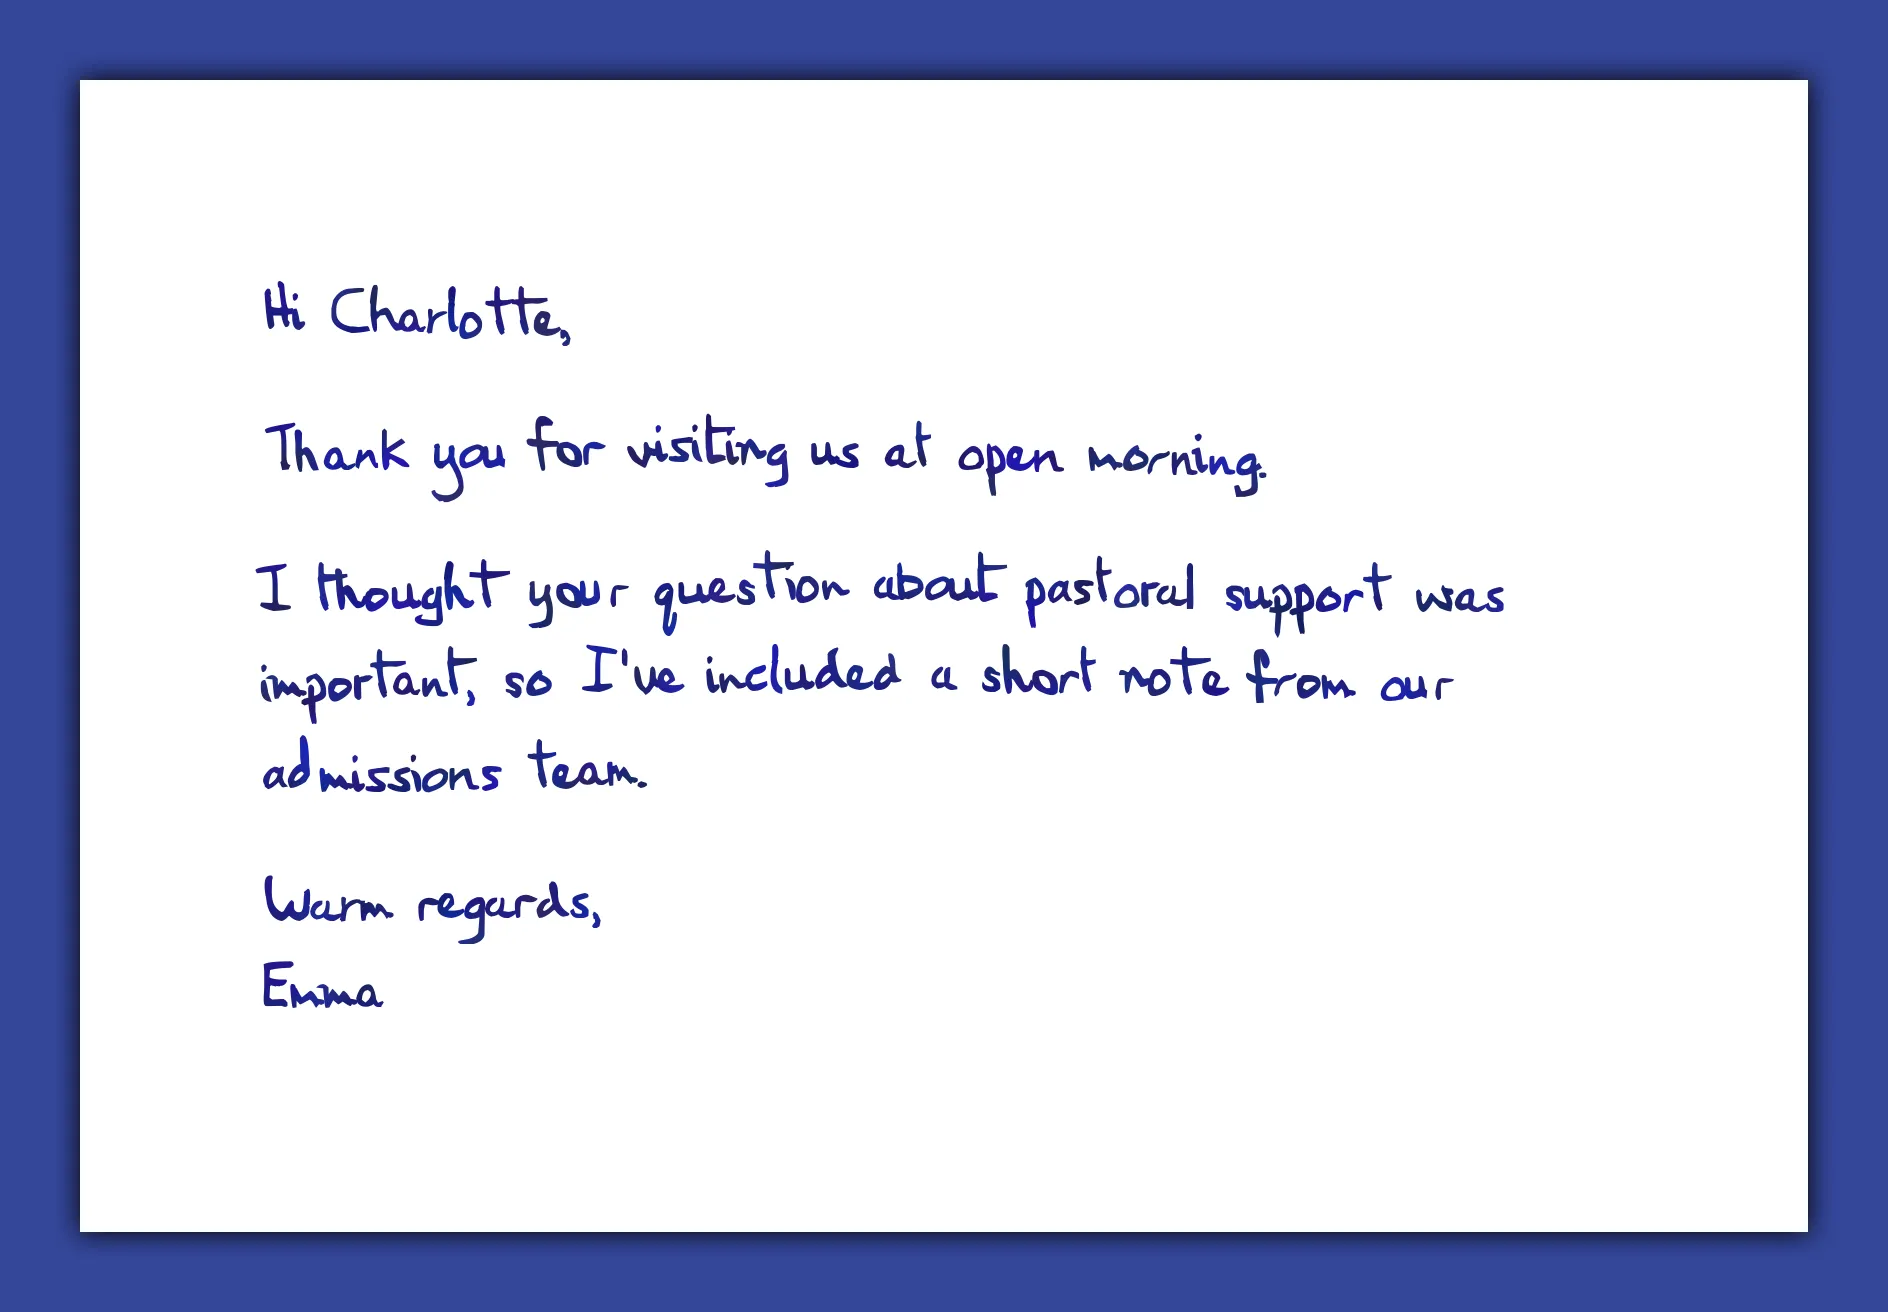 Hi Charlotte,
Thank you for visiting us at open morning.
I thought your question about pastoral support was
important, so I've included a short note from our
admissions team.
Warm regards,
Emma